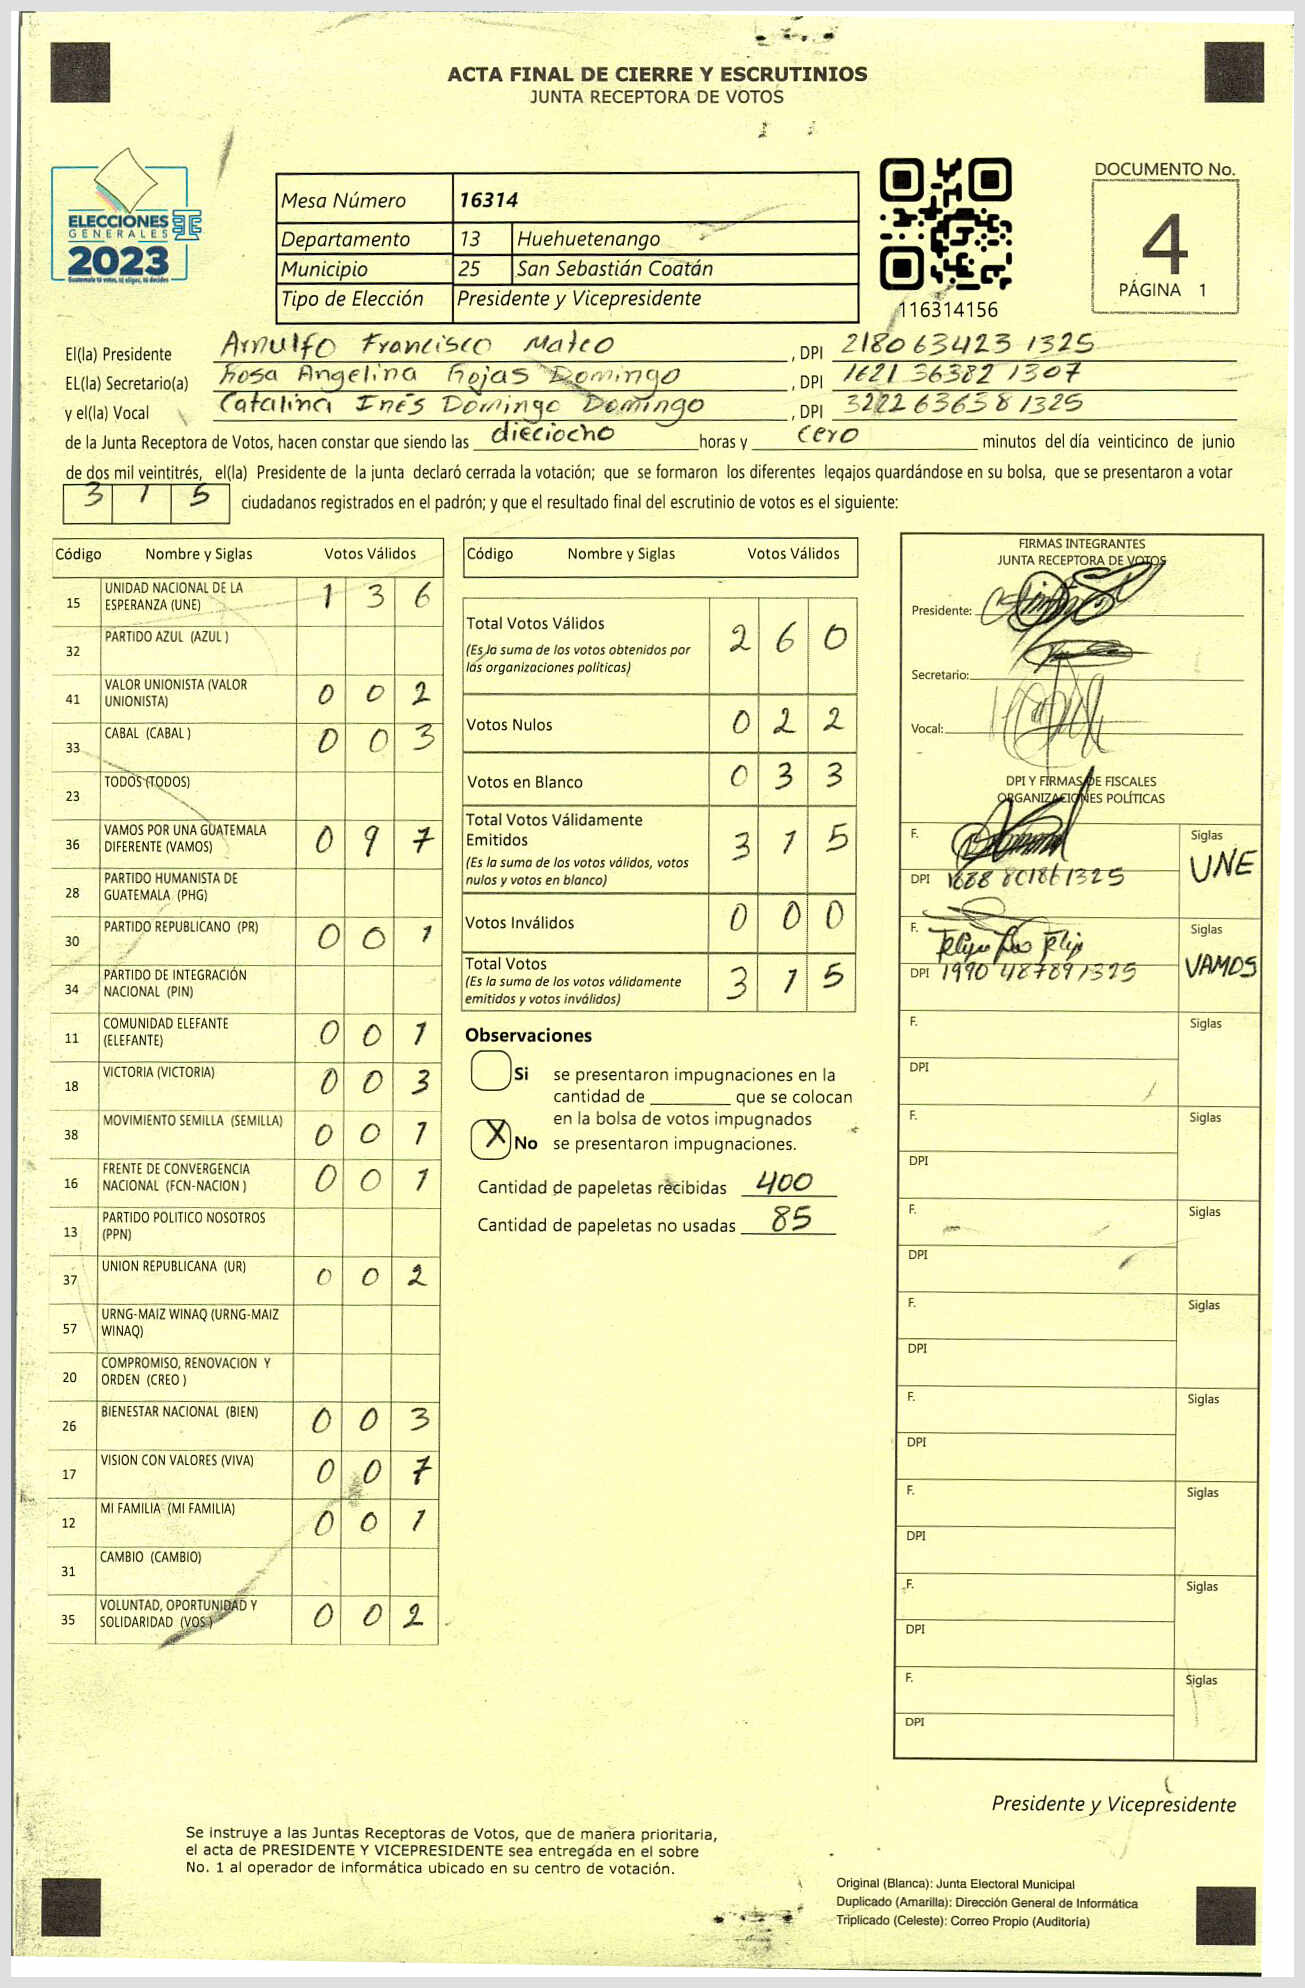 ACTA FINAL DE CIERRE Y ESCRUTINIOS
JUNTA RECEPTORA DE VOTOS
ELECCIONES
GENERALES
2023
Guatemala tú votas, tú eliges, tú decides
Mesa Número 16314
Departamento 13 Huehuetenango
Municipio 25 San Sebastián Coatán
Tipo de Elección Presidente y Vicepresidente
116314156
DOCUMENTO No.
4
PÁGINA 1
El(la) Presidente Arnulfo Francisco Mateo , DPI 2180 63423 1325
EL(la) Secretario(a) Rosa Angelina Rojas Domingo , DPI 1621 36382 1307
y el(la) Vocal Catalina Inés Domingo Domingo , DPI 3222 63638 1325
de la Junta Receptora de Votos, hacen constar que siendo las dieciocho horas y cero minutos del día veinticinco de junio
de dos mil veintitrés, el(la) Presidente de la junta declaró cerrada la votación; que se formaron los diferentes legajos quardándose en su bolsa, que se presentaron a votar
3 1 5 ciudadanos registrados en el padrón; y que el resultado final del escrutinio de votos es el siguiente:
Código Nombre y Siglas Votos Válidos
15 UNIDAD NACIONAL DE LA ESPERANZA (UNE) 1 3 6
32 PARTIDO AZUL (AZUL )
41 VALOR UNIONISTA (VALOR UNIONISTA) 0 0 2
33 CABAL (CABAL ) 0 0 3
23 TODOS (TODOS)
36 VAMOS POR UNA GUATEMALA DIFERENTE (VAMOS) 0 9 7
28 PARTIDO HUMANISTA DE GUATEMALA (PHG)
30 PARTIDO REPUBLICANO (PR) 0 0 1
34 PARTIDO DE INTEGRACIÓN NACIONAL (PIN)
11 COMUNIDAD ELEFANTE (ELEFANTE) 0 0 1
18 VICTORIA (VICTORIA) 0 0 3
38 MOVIMIENTO SEMILLA (SEMILLA) 0 0 1
16 FRENTE DE CONVERGENCIA NACIONAL (FCN-NACION ) 0 0 1
13 PARTIDO POLITICO NOSOTROS (PPN)
37 UNION REPUBLICANA (UR) 0 0 2
57 URNG-MAIZ WINAQ (URNG-MAIZ WINAQ)
20 COMPROMISO, RENOVACION Y ORDEN (CREO )
26 BIENESTAR NACIONAL (BIEN) 0 0 3
17 VISION CON VALORES (VIVA) 0 0 7
12 MI FAMILIA (MI FAMILIA) 0 0 1
31 CAMBIO (CAMBIO)
35 VOLUNTAD, OPORTUNIDAD Y SOLIDARIDAD (VOS ) 0 0 2
Código Nombre y Siglas Votos Válidos
Total Votos Válidos 2 6 0
(Es la suma de los votos obtenidos por
las organizaciones políticas)
Votos Nulos 0 2 2
Votos en Blanco 0 3 3
Total Votos Válidamente
Emitidos 3 1 5
(Es la suma de los votos válidos, votos
nulos y votos en blanco)
Votos Inválidos 0 0 0
Total Votos 3 1 5
(Es la suma de los votos válidamente
emitidos y votos inválidos)
Observaciones
Si se presentaron impugnaciones en la
cantidad de ________ que se colocan
en la bolsa de votos impugnados
X No se presentaron impugnaciones.
Cantidad de papeletas recibidas 400
Cantidad de papeletas no usadas 85
FIRMAS INTEGRANTES
JUNTA RECEPTORA DE VOTOS
Presidente:
Secretario:
Vocal:
DPI Y FIRMAS DE FISCALES
ORGANIZACIONES POLÍTICAS
F. Siglas
UNE
DPI 1325
F. Siglas
DPI 1990 48789 1325 VAMOS
F. Siglas
DPI
F. Siglas
DPI
F. Siglas
DPI
F. Siglas
DPI
F. Siglas
DPI
F. Siglas
DPI
F. Siglas
DPI
F. Siglas
DPI
Presidente y Vicepresidente
Se instruye a las Juntas Receptoras de Votos, que de manera prioritaria,
el acta de PRESIDENTE Y VICEPRESIDENTE sea entregada en el sobre
No. 1 al operador de informática ubicado en su centro de votación.
Original (Blanca): Junta Electoral Municipal
Duplicado (Amarilla): Dirección General de Informática
Triplicado (Celeste): Correo Propio (Auditoría)